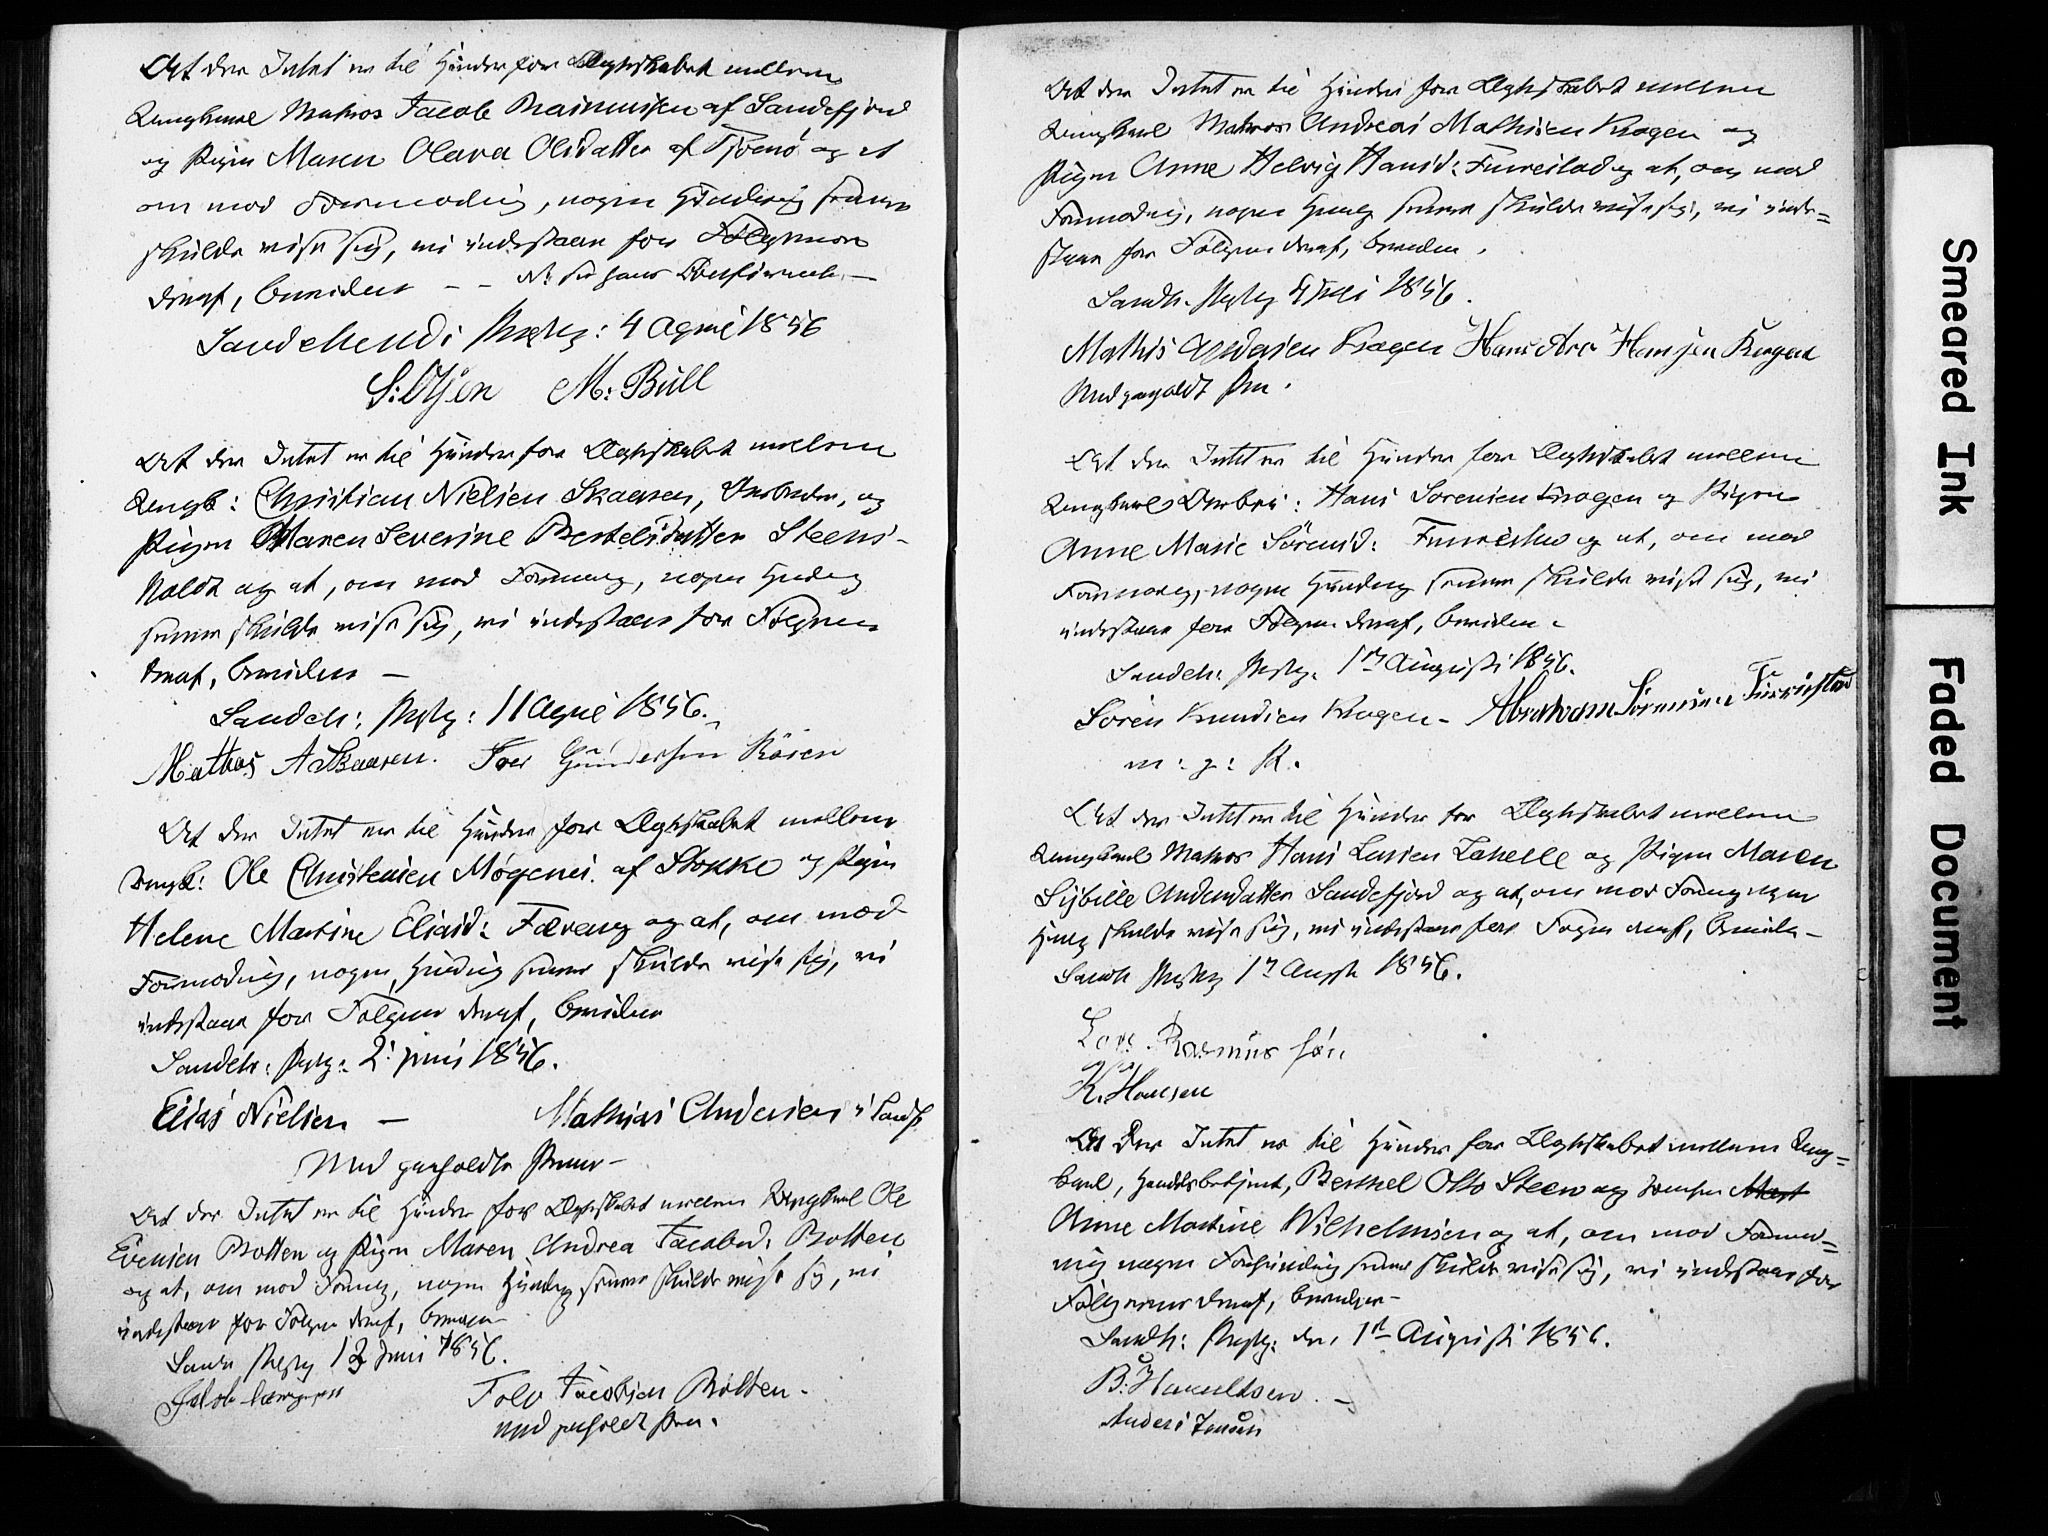 At der Intet er til Hinder for Ægteskabet mellem
Ungkarl Matros Jacob Rasmussen af Sandefjord
og Pigen Maren Olava Olsdatter af Tjømø og at
om mod Formodning, nogen Hindring senere
skulde vise sig, vi indestaaer for Følgerne
deraf, bevidner
Sandeherreds Prstg: 4 April 1856
S: Olsen M: Bull
At der Intet er til Hinder for Ægteskabet mellem
Ungk: Christian Nielsen Skaaren, og
Pigen Maren Severine Bertelsdatter Steens-
holdt og at, om mod Formodng, nogen Hindrg
senere skulde vise sig, vi indestaaer for Følgerne
deraf, bevidner —
Sandeh: Prstg: 11 April 1856.
Mathias A Skaaren. Iver Gundersen Råsen
At der Intet er til Hinder for Ægteskabet mellem
Ungk: Ole Christensen Mogenes. af Stokke og Pigen
Helene Martine Eliasd: Fævang og at, om mod
Formodning, nogen Hindring senere skulde vise sig, vi
indestaaer for Følgerne deraf, bevidner
Sandeh: Prstg: 2. juni 1856.
Elias Nielsen — Mathias Andersen i Sandf
Med paaholdte Penne —
At der Intet er til Hinder for Ægteskabet mellem Ungkarl Ole
Evensen Rotten og Pigen Maren Andrea Jacobsd: Rotten
og at, om mod Formng, nogen Hindrg senere skulde vise sig, vi
indestaaer for Følgerne deraf, bevidner
Sandh Prstg 12 Juni 1856.
Jakob
Jacobsen Rotten.
med paaholdt Pen.
At der Intet er til Hinder for Ægteskabet mellem
Ungkarl Matros Andreas Mathisen Kragen og
Pigen Anne Helvig Hansd: Furrestad og at, om mod
Formodnig, nogen Hindrg senere skulde vise sig, vi inde=
staaer for Følgerne deraf, bevidner.
Sandh. Prstg 4 Juli 1856.
Mathis Andersen Kragen Hans Hansen
Med paaholdt Pen.
At der Intet er til Hinder for Ægteskabet mellem
Ungkarl Arbei: Hans Sørensen Kragen og Pigen
Anne Marie Sørensd: Furrestad og at, om mod
Formodng, nogen Hindrng senere skulde vise sig, vi
indestaaer for Følgerne deraf, bevidner
Sandeh: Prstg. 1ste August 1856.
Søren Knudsen Kragen – Abraham Sørensen Furrestad
m: p: P.
At der Intet er til Hinder for Ægteskabet mellem
Ungkarl Matros Hans Larsen Lahelle og Pigen Maren
Sybille Andersdatter Sandefjord og at, om mod Formng nogen
Hindg skulde vise sig, vi indestaaer for Følgerne deraf, bevidner –
Sandh Prstg 1ste August 1856.
Rasmus
K. Hansen
At Der Intet er til Hinder for Ægteskabet mellem Ung=
karl, Handelsbetjent, Berthel Otto Steen og Jomfru
Anne Martine Wilhelmsen og at, om mod Formod=
nig nogen Forhindring senere skulde vise sig, vi indestaaer for
Følgerne deraf, bevidner –
Sandh: Prstg: den 1ste August 1856.
Anders Jensen
Smeared Ink
Faded Document